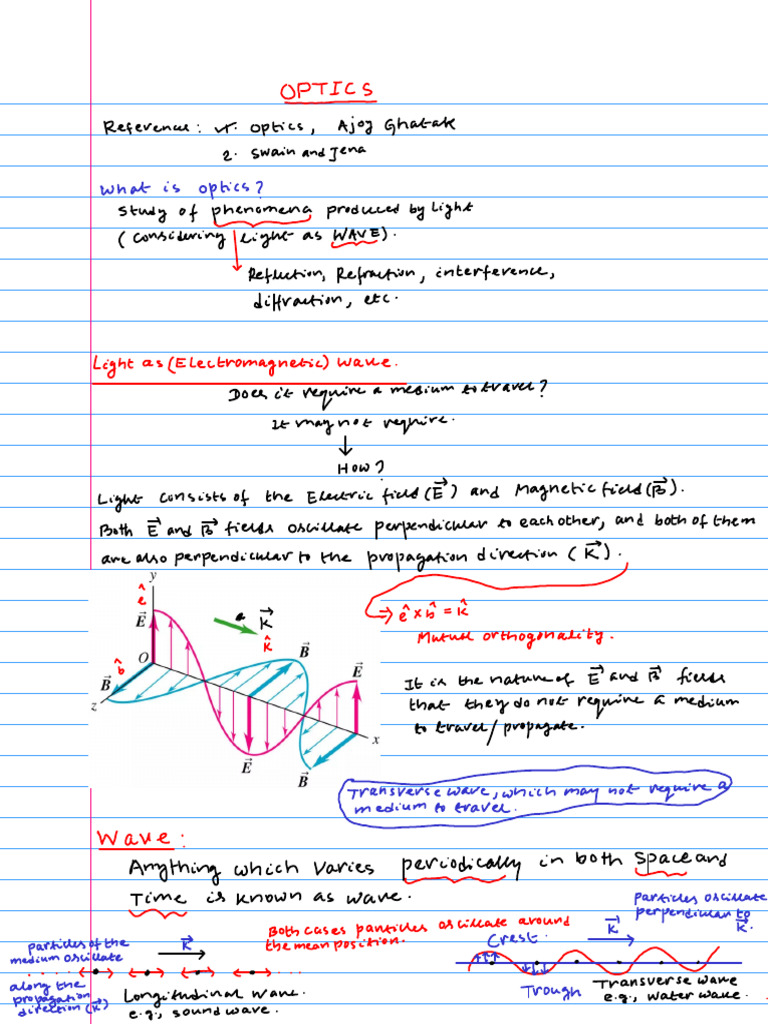 OPTICS
Reference: 1. Optics, Ajoy Ghatak
2. Swain and Jena
What is optics?
Study of phenomena produced by light
(considering light as WAVE).
Reflection, Refraction, interference,
diffraction, etc.
Light as (Electromagnetic) wave.
Does it require a medium to travel?
It may not require.
How?
Light consists of the Electric field (E⃗) and Magnetic field (B⃗).
Both E⃗ and B⃗ fields oscillate perpendicular to each other, and both of them
are also perpendicular to the propagation direction (K⃗).
y
ê
E⃗
K⃗
k̂
O
b̂
B⃗
z
B⃗
E⃗
x
E⃗
B⃗
ê × b̂ = k̂
Mutual orthogonality.
It is the nature of E⃗ and B⃗ fields
that they do not require a medium
to travel/propagate.
Transverse wave, which may not require a
medium to travel.
Wave:
Anything which varies periodically in both space and
Time is known as wave.
particles of the
medium oscillate
along the
propagation
direction (K⃗)
K⃗
Longitudinal wave.
e.g., sound wave.
Both cases particles oscillate around
the mean position.
Particles oscillate
perpendicular to
K⃗.
K⃗
Crest.
Trough
Transverse wave
e.g., water wave.